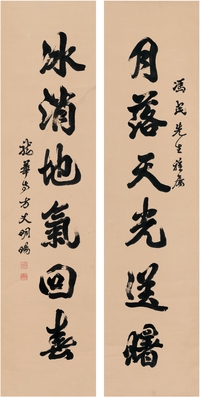 馮民先生雅屬
月落天光送曙
冰消地氣回春
龍華方夫明鴻